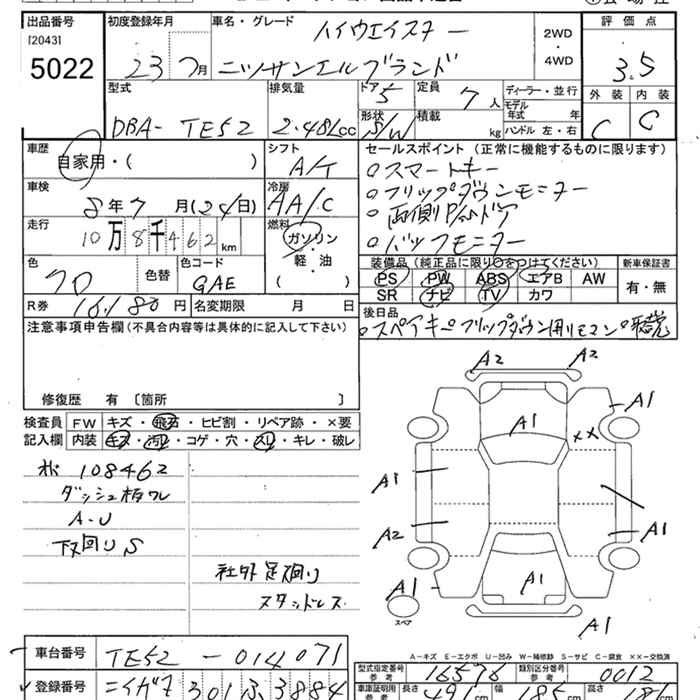 出品番号 初度登録年月 車名・グレード 評価点
[2043] ハイウエイスター 2WD・4WD
5022 23 7月 ニッサンエルグランド 3.5
型式 排気量 ドア 5 定員 7人 ディーラー・並行 外装 内装
DBA- TE52 2.48Lcc 形状 S/W 積載 kg モデル年式 年 C C
ハンドル 左・右
車歴 シフト セールスポイント(正常に機能するものに限ります)
自家用・( ) A/T ○スマートキー
車検 冷房 ○フリップダウンモニター
8年7月(24日) AA/C ○両側Pスルドア
走行 燃料 ○バックモニター
10万8千462km ガソリン・軽・油 ( )
装備品(純正品に限り○をつけてください) 新車保証書
色 色替 色コード PS PW ABS エアB AW 有・無
クロ GAE SR ナビ TV カワ
R券 16180円 名変期限 月 日 後日品
○スペアキー○フリップダウン用リモコン○
注意事項申告欄(不具合内容等は具体的に記入して下さい)
修復歴 有〔箇所 〕
検査員 FW キズ・飛石・ヒビ割・リペア跡・×要
記入欄 内装 キズ・汚レ・コゲ・穴・スレ・キレ・破レ
A2 A2
A1
A1
××
A1
A2 A1
A1 A1
A1
スペア
108462
ダッシュ板ワレ
A-U
下回りS
社外足廻り
スタッドレス
A-キズ E-エクボ U-凹み W-補修跡 S-サビ C-腐食 ××-交換済
車台番号 TE52 -014071
型式指定番号 参考 16576 類別区分番号 参考 0012
登録番号 ニイガタ 301 ふ 3884
車庫証明用 参考 長さ 491cm 幅 185cm 高さ 181cm